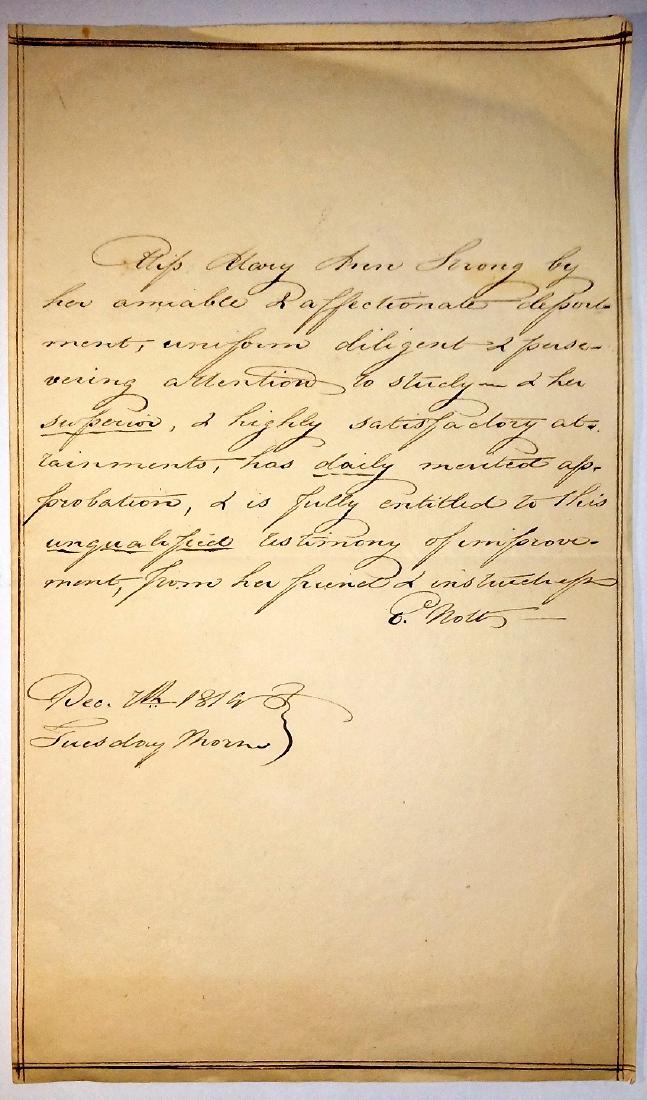 Miss Mary Ann Strong by
her amiable & affectionate deport-
ment, uniform diligent & perse-
vering attention to study— & her
superior, & highly satisfactory at-
tainments, has daily merited ap-
probation, & is fully entitled to this
unqualified testimony of improve-
ment, from her friend & instructress
E. Nott—
Dec. 7th
Tuesday Morn